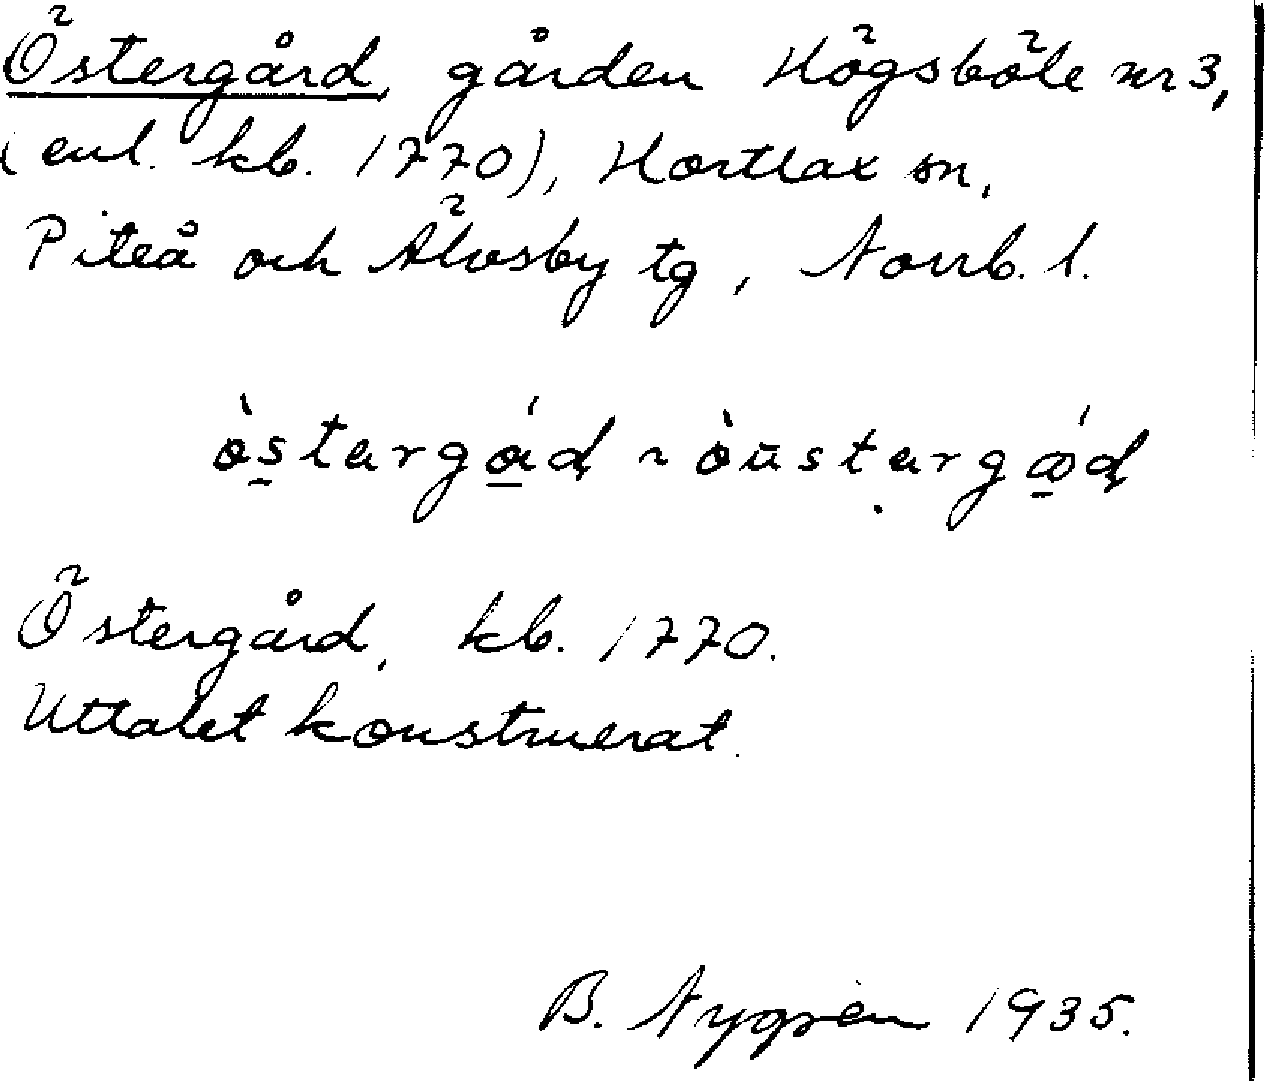 Östergård, gården Högsböle nr 3,
(enl. kb. 1770), Hortlax sn,
Piteå och Älvsby tg, Norrb. l.
Östergård, kb. 1770.
Uttalet konstruerat.
B. Nygren 1935.